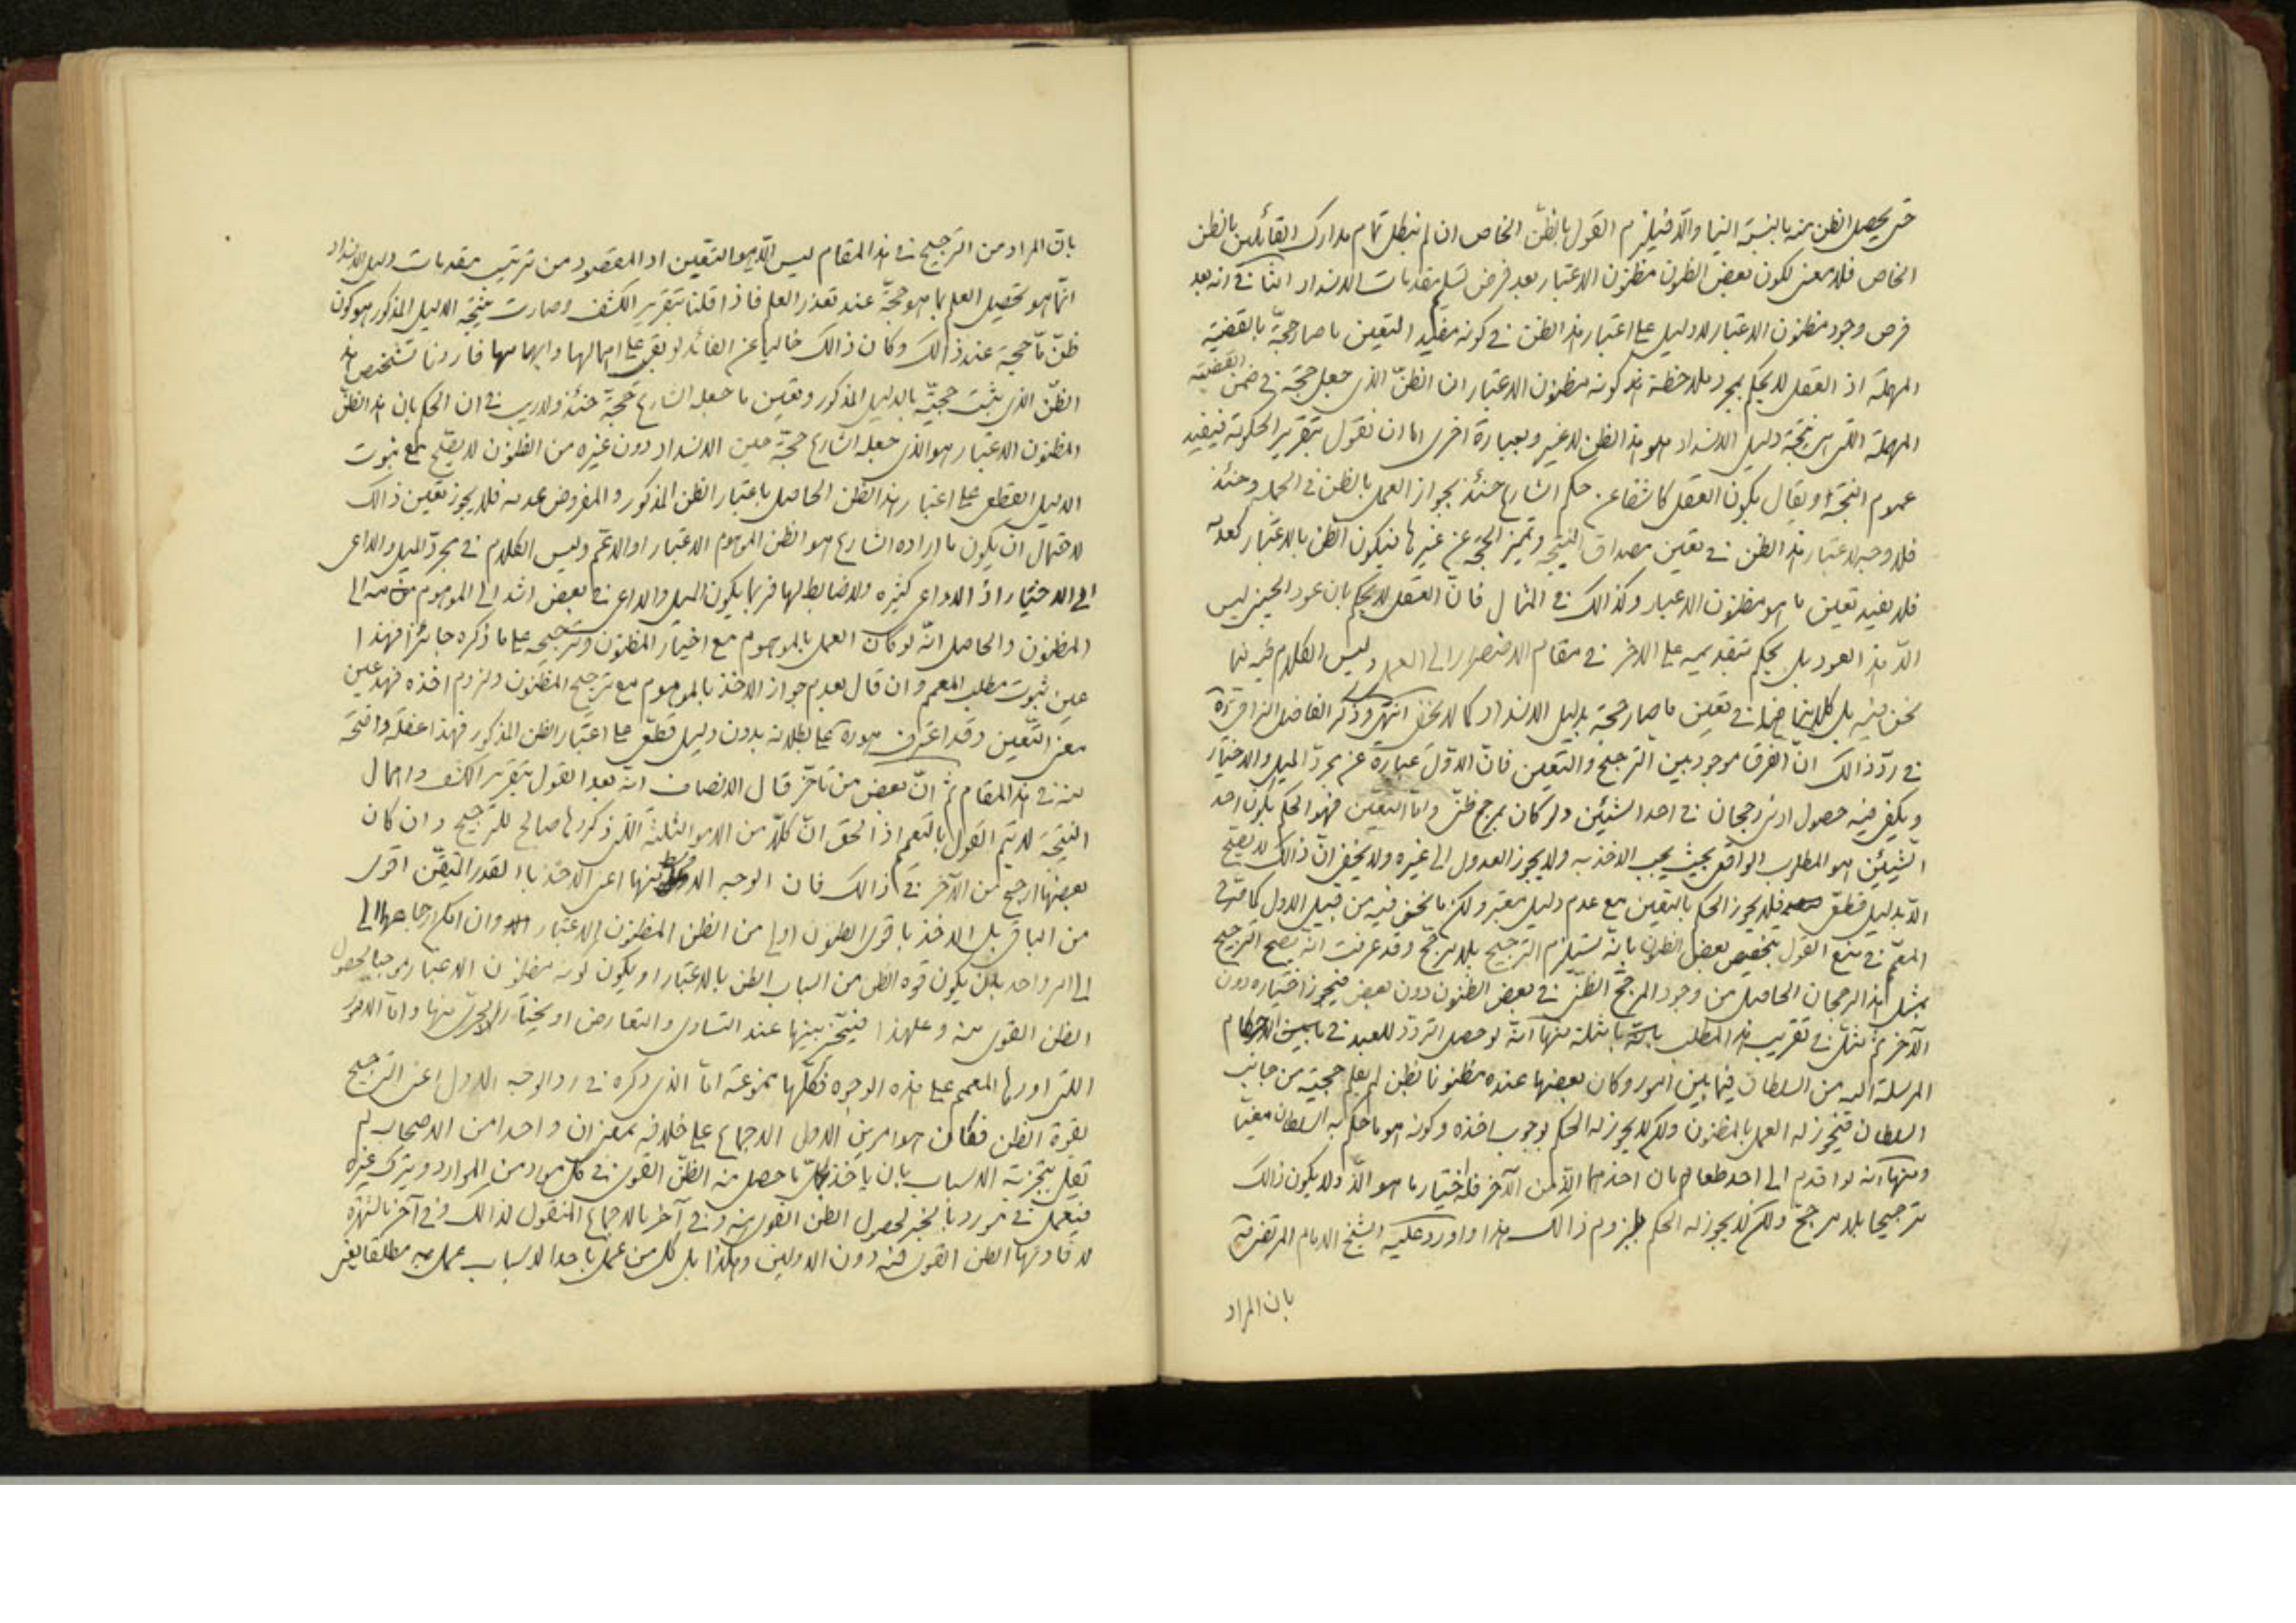 حتى يحصل الظن منه بالنسبة الينا والّا فيلزم القول بالظنّ الخاص ان لم نبطل تمام مدارك القائلين بالظن
الخاص فلا معنى لكون بعض الظنون مظنون الاعتبار بعد فرض تسليم مقدمات الانسداد الثانى انه بعد
فرض وجود مظنون الاعتبار لا دليل على اعتبار هذا الظن فى كونه مفيد التعين ما صار حجّة بالقضية
المهملة اذ العقل لا يحكم بمجرد ملاحظة كونه مظنون الاعتبار ان الظنّ الذى جعل حجّة فى ضمن القضية
المهملة التى هى نتيجة دليل الانسداد هو هذا الظن لا غير وبعبارة اخرى اما ان نقول بتقرير الحكومة فيفيد
عموم النتيجة او يقال بكون العقل كاشفا عن حكم الشارع حينئذ بجواز العمل بالظن فى الجملة وحينئذ
فلا وجه لاعتبار هذا الظن فى تعين مصداق النتيجة وتميز الحجة عن غيرها فيكون الظن بالاعتبار كعدمه
فلا يفيد تعين ما هو مظنون الاعتبار وكذالك فى المثال فانّ العقل لا يحكم بان عود الجيز ليس
الّا هذا العود بل يحكم بتقديمه على الاخر فى مقام الاضطرار الى العمل وليس الكلام فيه فيما
نحن فيه بل كلامنا هنا فى تعين ما صار حجة بدليل الانسداد كما لا يخفى انتهى وذكر الفاضل النراقى ره
فى ردّ ذالك انّ الفرق موجود بين الترجيح والتعين فانّ الاوّل عبارة عن مجردّ الميل والاختيار
ويكفى فيه حصول ادنى رجحان فى احد الشيئين ولو كان بمرجح ظنى وامّا التعين فهو الحكم بكون احد
الشيئين هو المطلوب الواقعى بحيث يجب الاخذ به ولا يجوز العدول الى غيره ولا يخفى انّ ذالك لا يصح
الّا بدليل قطعى فلا يجوز الحكم بالتعين مع عدم دليل معتبر ولكن ما نحن فيه من قبيل الاول كما قرّر
المعمّم فى منع القول بتخصيص بعض الظنون بانّه يستلزم الترجيح بلا مرجّح وقد عرفت انّه يصح الترجيح
بمثل هذا الرجحان الحاصل من وجود المرجّح الظنّى فى بعض الظنون دون بعض فيجوز اختياره دون
الآخر ثم مثّل فى تقريب هذا المطلب بامثلة منها انّه لو حصل التردّد للعبد فى الاحكام
المرسلة اليه من السلطان فيما بين امور وكان بعضها عنده مظنونا بظن لم يعلم حجيته من جانب
السلطان فيجوز له العمل بالمظنون ولكن لا يجوز له الحكم بوجوب اخذه وكونه هو ما حكم به السلطان معيّنا
ومنها انه لو اقدم الى احد طعامان احدهما الذّ من الآخر فله اختيار ما هو الذّ ولا يكون ذالك
ترجيحا بلا مرجّح ولكن لا يجوز له الحكم بلزوم ذالك هذا واورد عليه الشيخ الامام المرتضى قدّه
بان المراد
بانّ المراد من الترجيح فى هذا المقام ليس الّا هو التعّين اذ المقصود من ترتيب مقدمات دليل الانسداد
انّما هو تحصيل العلم بما هو حجّة عند تعذر العلم فاذا قلنا بتقرير الكشف وصارت نتيجة الدليل المذكور هو كون
ظنّ ما حجة عند ذالك وكان ذالك خاليا عن الفائدة لو بقى على اهمالها وابهامها فاردنا تشخيص هذا
الظنّ الذى يثبت حجيّته بالدليل المذكور وتعين ما جعله الشارع حجة حينئذ ولا ريب فى ان الحكم بان هذا الظنّ
المظنون الاعتبار هو الذى جعله الشارع حجّة حين الانسداد دون غيره من الظنون لا يصّح مع ثبوت
الدليل القطعى على اعتبار هذا الظن الحاصل باعتبار الظن المذكور والمفروض عدمه فلا يجوز تعين ذالك
لاحتمال ان يكون ما اراده الشارع هو الظن الموهوم الاعتبار او الاعّم وليس الكلام فى مجردّ الميل والداعى
الى الاختيار اذ الدواعى كثيره ولا ضابط لها فربما يكون الميل والداعى فى بعض اشد الى الموهوم منه الى
المظنون والحاصل انّه لو كان العمل بالموهوم مع اختيار المظنون وترجيحه على ما ذكره جائزا فهذا
عين ثبوت مطلب المعمم وان قال بعدم جواز الاخذ بالموهوم مع ترجيح المظنون ولزوم اخذه فهذا عين
معنى التعّين وقد اعترف هو ره على بطلانه بدون دليل قطعّى على اعتبار الظن المذكور فهذا غفلة واضحة
منه فى هذا المقام ثم انّ بعض من تاخّر قال الانصاف انّه بعد القول بتقرير الكشف واهمال
النتيجة لا يتم القول بالتعميم اذ الحق انّ كلّا من الامور الثلثة التى ذكروها صالح للترجيح وان كان
بعضها ارجح من الآخر فى ذالك فان الوجه الاول منها اعنى الاخذ بالقدر المتيقّن اقوى
من الباقى بل الاخذ باقوى الظنون اولى من الظن المظنون الاعتبار وان امكن ارجاعهما الى
امر واحد بان يكون قوه الظن من اسباب الظن بالاعتبار او يكون كونه مظنون الاعتبار موجبا لحصول
الظن القوى منه وعلى هذا فيتخّير بينهما عند التساوى والتعارض او يختار الاحرى منها وامّا الامور
التى اوردها المعمم على هذه الوجوه فكلّها ممنوعة امّا الذى ذكره فى رد الوجه الاول اعنى الترجيح
لقوة الظن فكان هو امرين الاول الاجماع على خلافه بمعنى ان واحدا من الاصحاب لم
يقل بتجزية الاسباب بان ياخذ بكلّ ما حصل منه الظنّ القوى فى كلّ مورد من الموارد ويترك غيره
فيعمل فى مورد بالخبر لحصول الظن القوى منه وفى آخر بالاجماع المنقول لذالك وفى آخر بالشهرة
لافادتها الظن القوى فيه دون الاولين وهكذا بل كل من عمل باحد الاسباب عمل به مطلقا يعنى